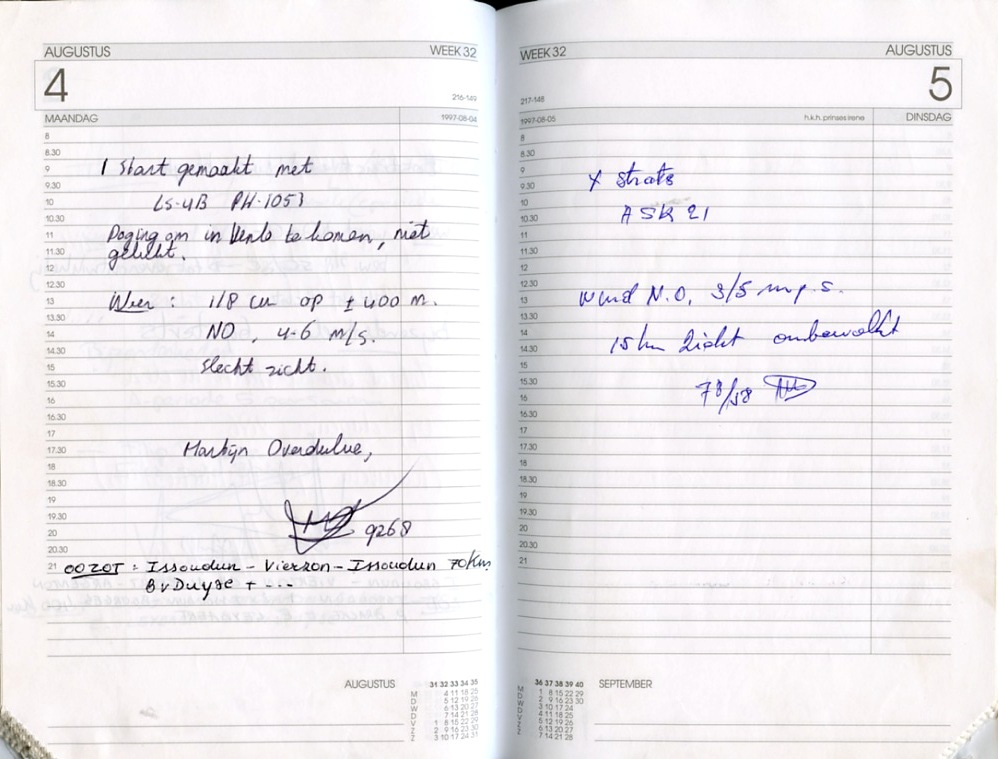 AUGUSTUS WEEK 32
4
216-149
MAANDAG 1997-08-04
8
8.30
9
1 Start gemaakt met
9.30
10
LS-4B PH-1053
10.30
11
Poging om in Venlo te komen, niet
11.30
gelukt.
12
12.30
13
Weer : 1/8 cu op ± 400 m.
13.30
14
NO, 4-6 m/s.
14.30
15
slecht zicht.
15.30
16
16.30
17
17.30
Martijn
18
18.30
19
19.30
20
9268
20.30
21
OOZOT : Issoudun - Vierzon - Issoudun 70Km
BvDuyse + ---
AUGUSTUS
31 32 33 34 35
M 4 11 18 25
D 5 12 19 26
W 6 13 20 27
D 7 14 21 28
V 1 8 15 22 29
Z 2 9 16 23 30
Z 3 10 17 24 31
WEEK 32 AUGUSTUS
5
217-148
1997-08-05 h.k.h. prinses Irene DINSDAG
8
8.30
9
starts
9.30
10
ASK 21
10.30
11
11.30
12
12.30
13
wind N.O, 3/5 m.p.s.
13.30
14
15 km zicht onbewolkt
14.30
15
15.30
16
16.30
17
17.30
18
18.30
19
19.30
20
20.30
21
36 37 38 39 40 SEPTEMBER
M 1 8 15 22 29
D 2 9 16 23 30
W 3 10 17 24
D 4 11 18 25
V 5 12 19 26
Z 6 13 20 27
Z 7 14 21 28